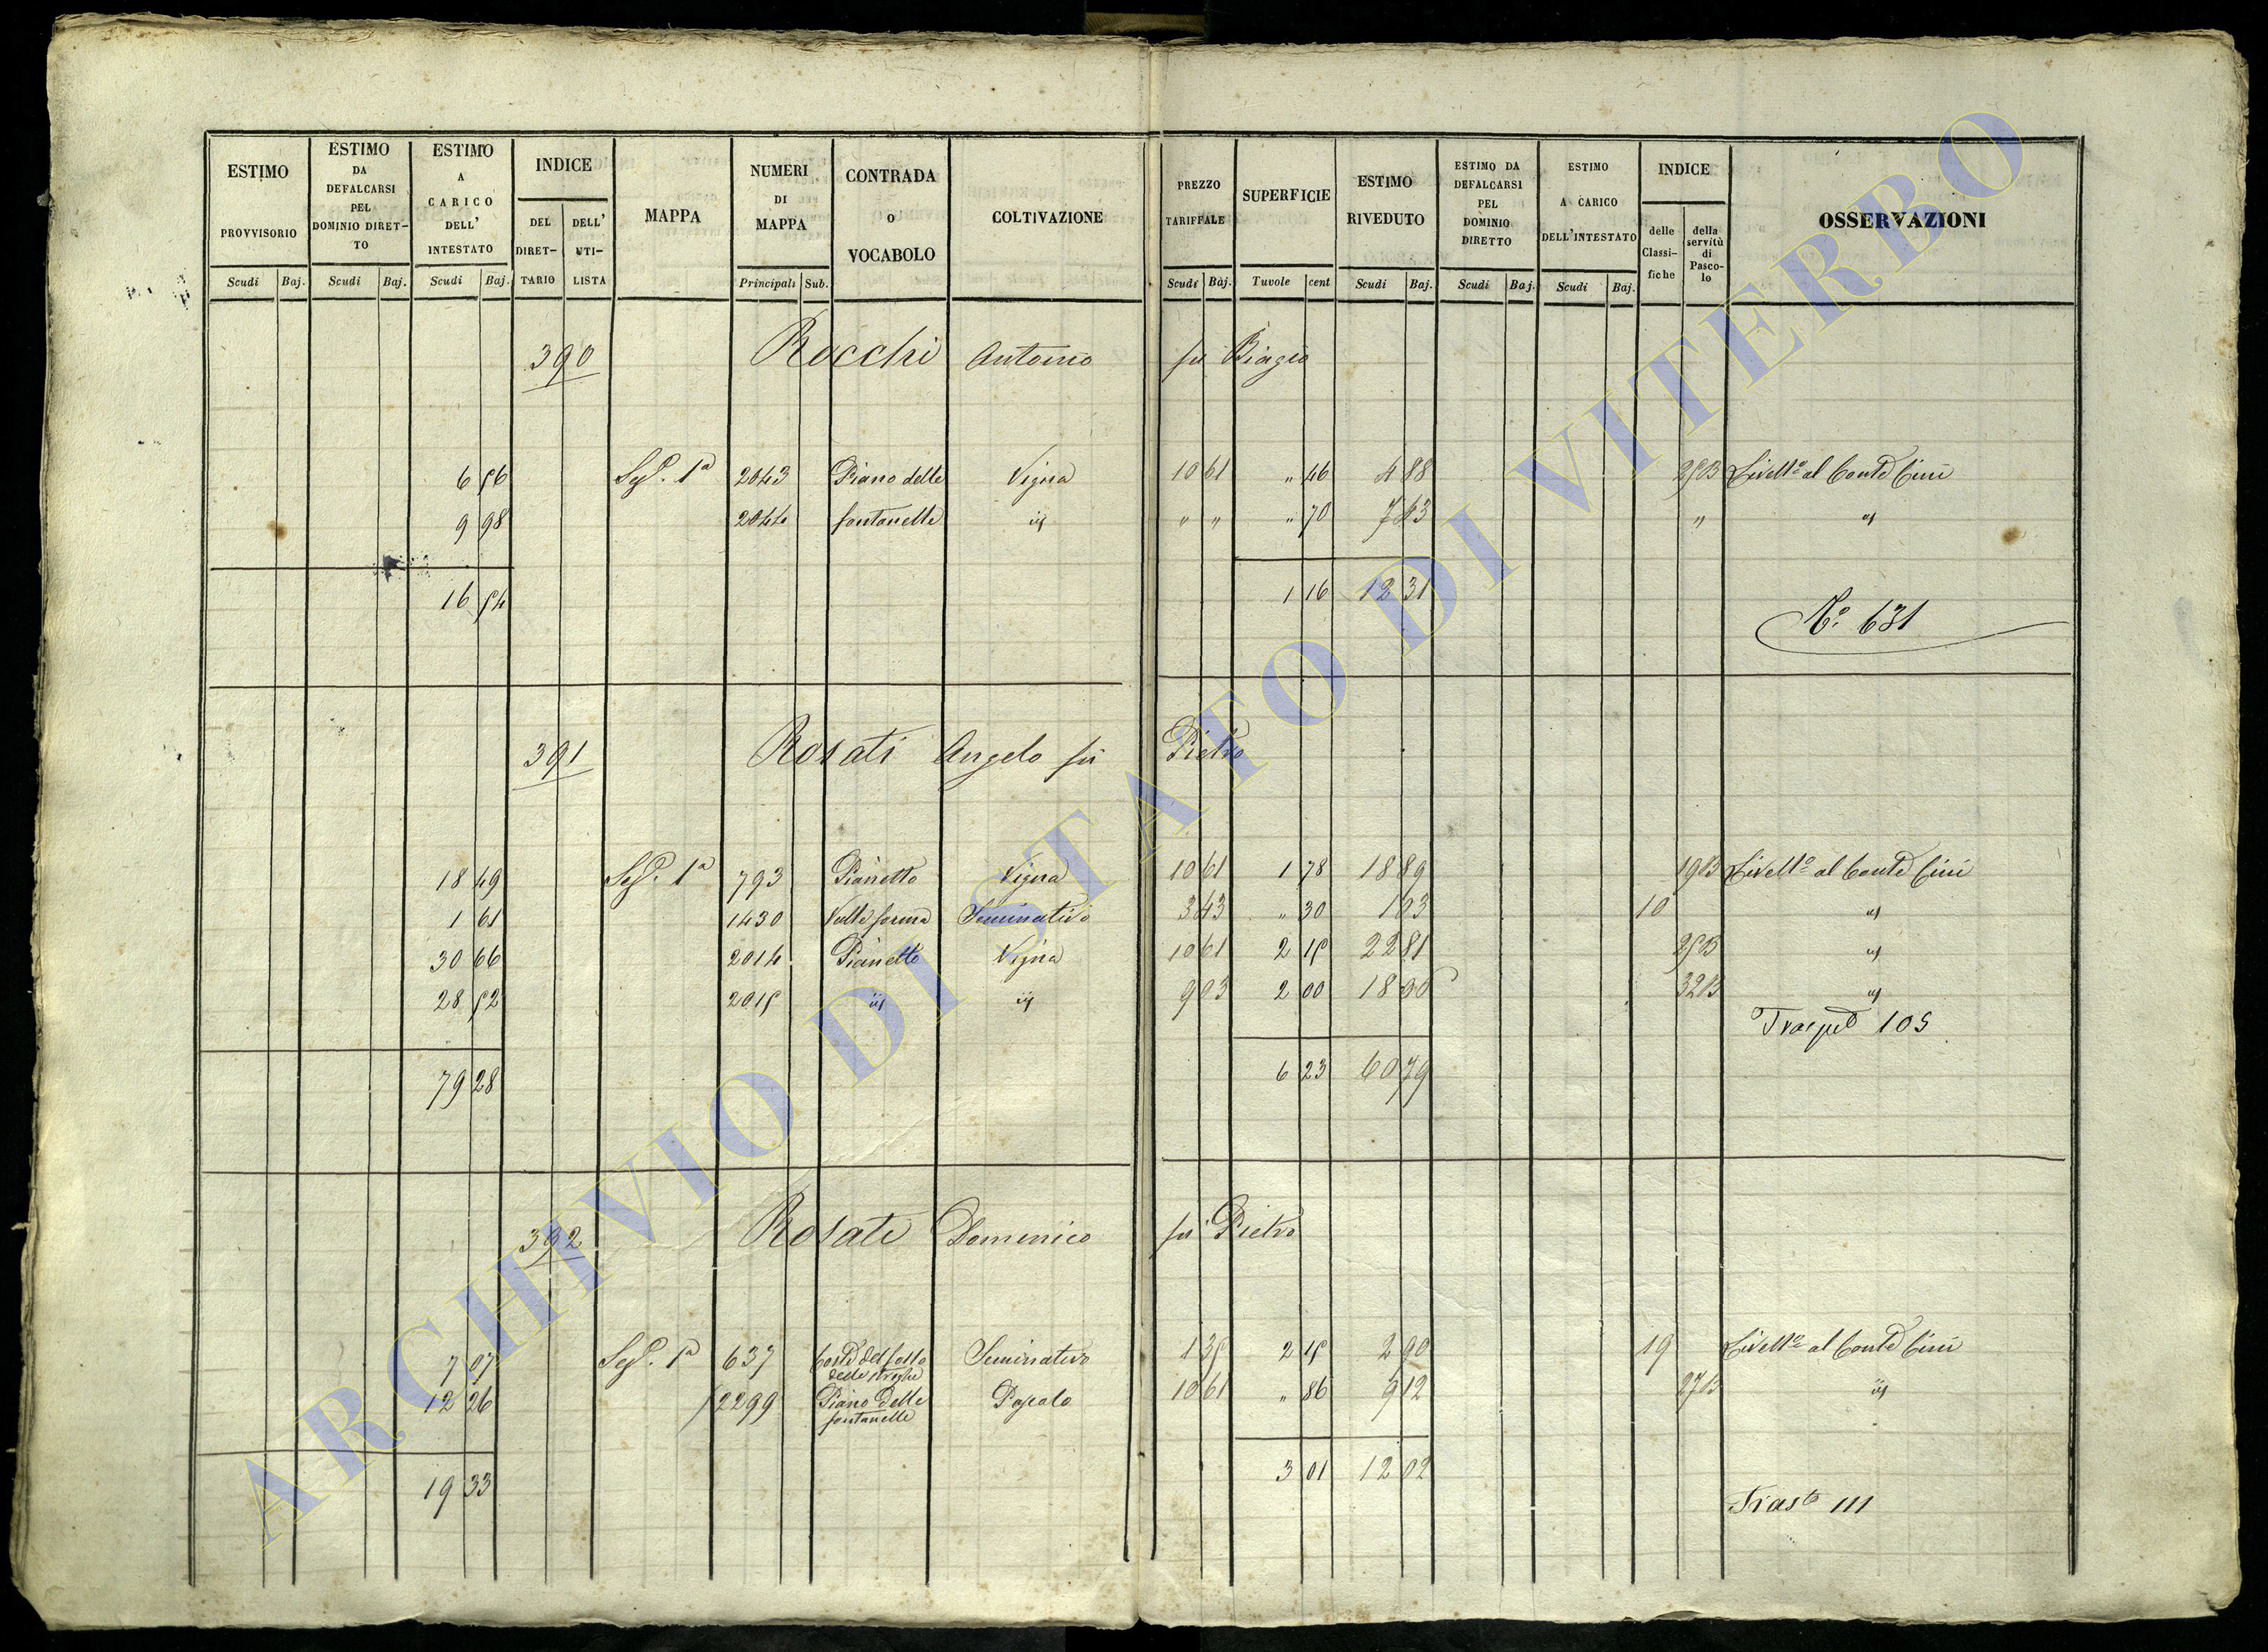 ESTIMO PROVVISORIO | ESTIMO DA DEFALCARSI PEL DOMINIO DIRET-TO | ESTIMO A CARICO DELL' INTESTATO | INDICE DEL DIRET-TARIO | DELL' UTI-LISTA | MAPPA | NUMERI DI MAPPA | CONTRADA o VOCABOLO | COLTIVAZIONE | PREZZO TARIFFALE | SUPERFICIE | ESTIMO RIVEDUTO | ESTIMO DA DEFALCARSI PEL DOMINIO DIRETTO | ESTIMO A CARICO DELL'INTESTATO | INDICE delle Classi-fiche | della servitù di Pasco-lo | OSSERVAZIONI
Scudi Baj. | Scudi Baj. | Scudi Baj. | Principali Sub. | Scudi Baj. | Tavole cent | Scudi Baj. | Scudi Baj. | Scudi Baj.
390 Rocchi Antonio fu Biagio
6 56 Sez. 1a 2043 Piano delle Vigna 10 61 " 46 4 88 Livello al Conte Cini
9 98 2044 fontanelle id " " " 70 7 43 " id
16 54 1 16 12 31
No. 631
391 Rosati Angelo fu Pietro
18 49 Sez. 1a 793 Pianetto Vigna 10 61 1 78 18 89 Livello al Conte Cini
1 61 1430 Seminativo 3 43 " 30 1 03 10 id
30 66 2014 Pianetto Vigna 10 61 2 15 22 81 id
28 52 2015 id id 9 03 2 00 18 06 id
105
79 28 6 23 60 79
392 Rosati Domenico fu Pietro
7 07 Sez. 1a 637 Coste del fosso delle streghe Seminativo 1 35 2 15 2 90 19 Livello al Conte Cini
12 26 2299 Piano delle fontanelle Pascolo 10 61 " 86 9 12 id
19 33 3 01 12 02
111
ARCHIVIO DI STATO DI VITERBO